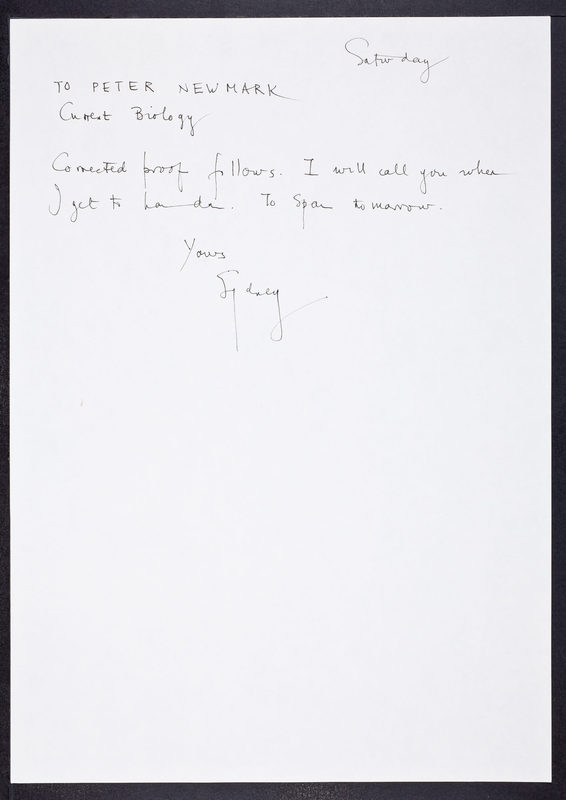 Saturday
TO PETER NEWMARK
Current Biology
Corrected proof follows. I will call you when
I get to London. To Spain tomorrow.
Yours
Sydney